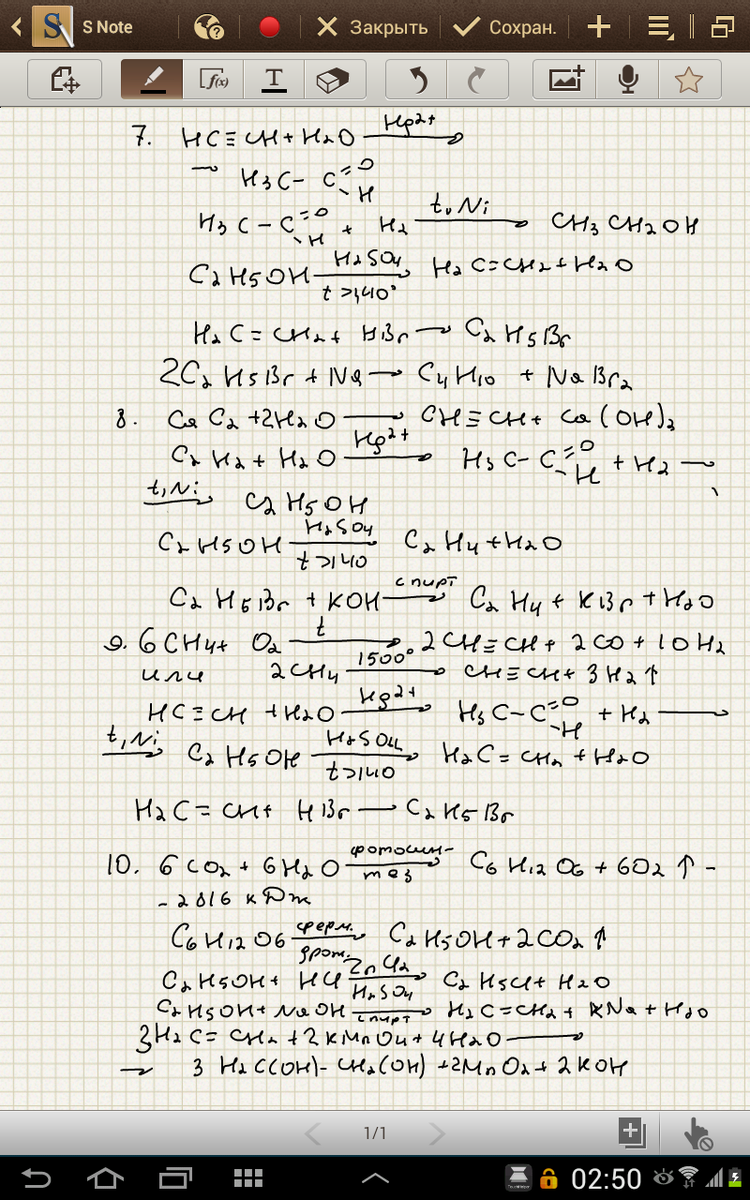 S Note
Закрыть
Сохран.
f(x)
T
7. HC≡CH + H2O —Hg2+→
→ H3C–C(=O)–H
H3C–C(=O)–H + H2 —t, Ni→ CH3CH2OH
C2H5OH —H2SO4, t>140°→ H2C=CH2 + H2O
H2C=CH2 + HBr → C2H5Br
2C2H5Br + Na → C4H10 + NaBr2
8. CaC2 + 2H2O → CH≡CH + Ca(OH)2
C2H2 + H2O —Hg2+→ H3C–C(=O)–H + H2 —
t, Ni C2H5OH
C2H5OH —H2SO4, t>140→ C2H4 + H2O
C2H5Br + KOH —спирт→ C2H4 + KBr + H2O
9. 6CH4 + O2 —t→ 2CH≡CH + 2CO + 10H2
или 2CH4 —1500°→ CH≡CH + 3H2↑
HC≡CH + H2O —Hg2+→ H3C–C(=O)–H + H2 —
t, Ni C2H5OH —H2SO4, t>140→ H2C=CH2 + H2O
H2C=CH + HBr → C2H5Br
10. 6CO2 + 6H2O —фотосин-тез→ C6H12O6 + 6O2↑ –
– 2816 кДж
C6H12O6 —ферм. дрож.→ C2H5OH + 2CO2↑
C2H5OH + HCl —ZnCl2, H2SO4→ C2H5Cl + H2O
C2H5OH + NaOH —спирт→ H2C=CH2 + KNa + H2O
3H2C=CH2 + 2KMnO4 + 4H2O →
→ 3H2C(OH)–CH2(OH) + 2MnO2 + 2KOH
1/1
02:50